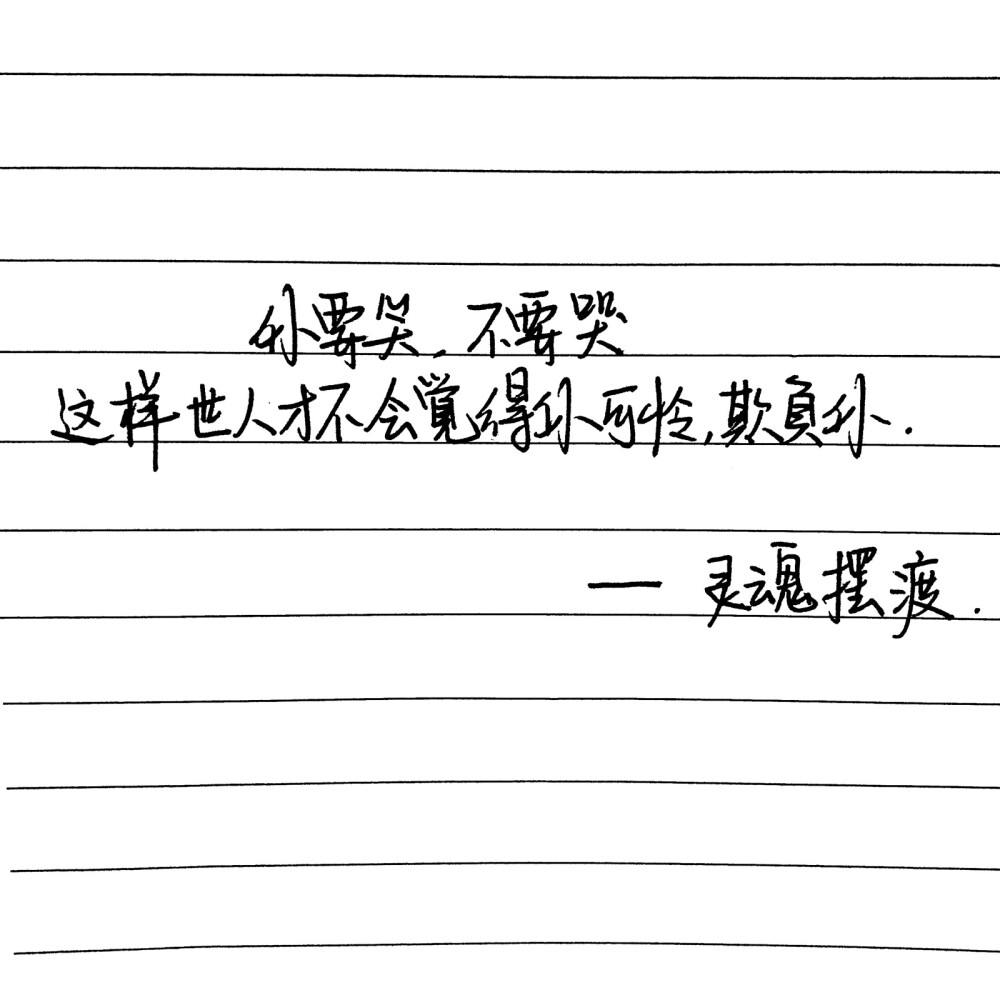 你要笑,不要哭
这样世人才不会覺得你可怜,欺負你.
— 灵魂摆渡.